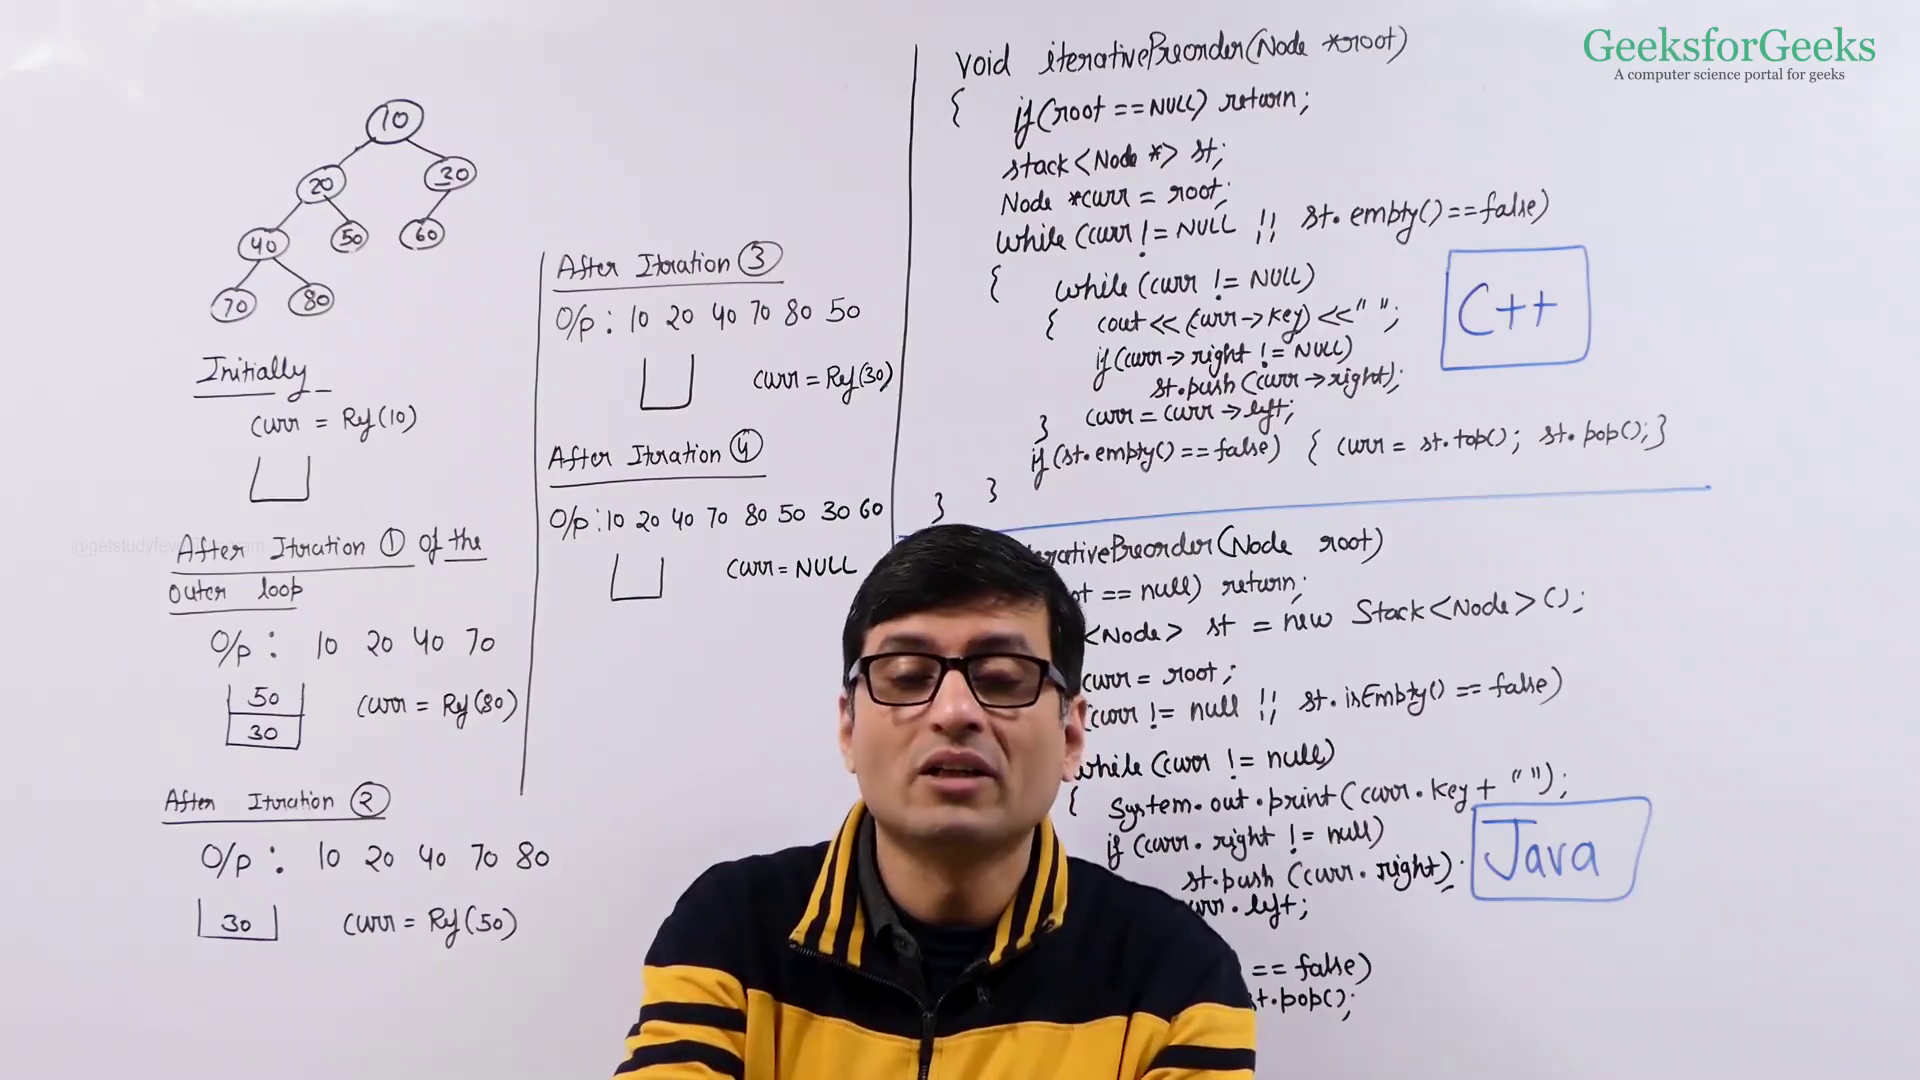 GeeksforGeeks
A computer science portal for geeks
10
20
30
40
50
60
70
80
Initially
curr = Ref(10)
After Itration 1 of the
outer loop
O/p : 10 20 40 70
50
30
curr = Ref(80)
After Itration 2
O/p : 10 20 40 70 80
30
curr = Ref(50)
After Itration 3
O/p : 10 20 40 70 80 50
curr = Ref(30)
After Itration 4
O/p : 10 20 40 70 80 50 30 60
curr = NULL
void iterativePreorder(Node *root)
{ if(root == NULL) return;
stack<Node *> st;
Node *curr = root;
while (curr != NULL || st.empty() == false)
{ while (curr != NULL)
{ cout << (curr->key) << " ";
if(curr->right != NULL)
st.push(curr->right);
curr = curr->left;
}
if(st.empty() == false) { curr = st.top(); st.pop(); }
}
}
C++
erativePreorder(Node root)
ot == null) return;
<Node> st = new Stack<Node>();
curr = root;
(curr != null || st.isEmpty() == false)
while (curr != null)
{ System.out.print(curr.key + " ");
if (curr.right != null)
st.push(curr.right);
urr.left;
== false)
st.pop();
Java